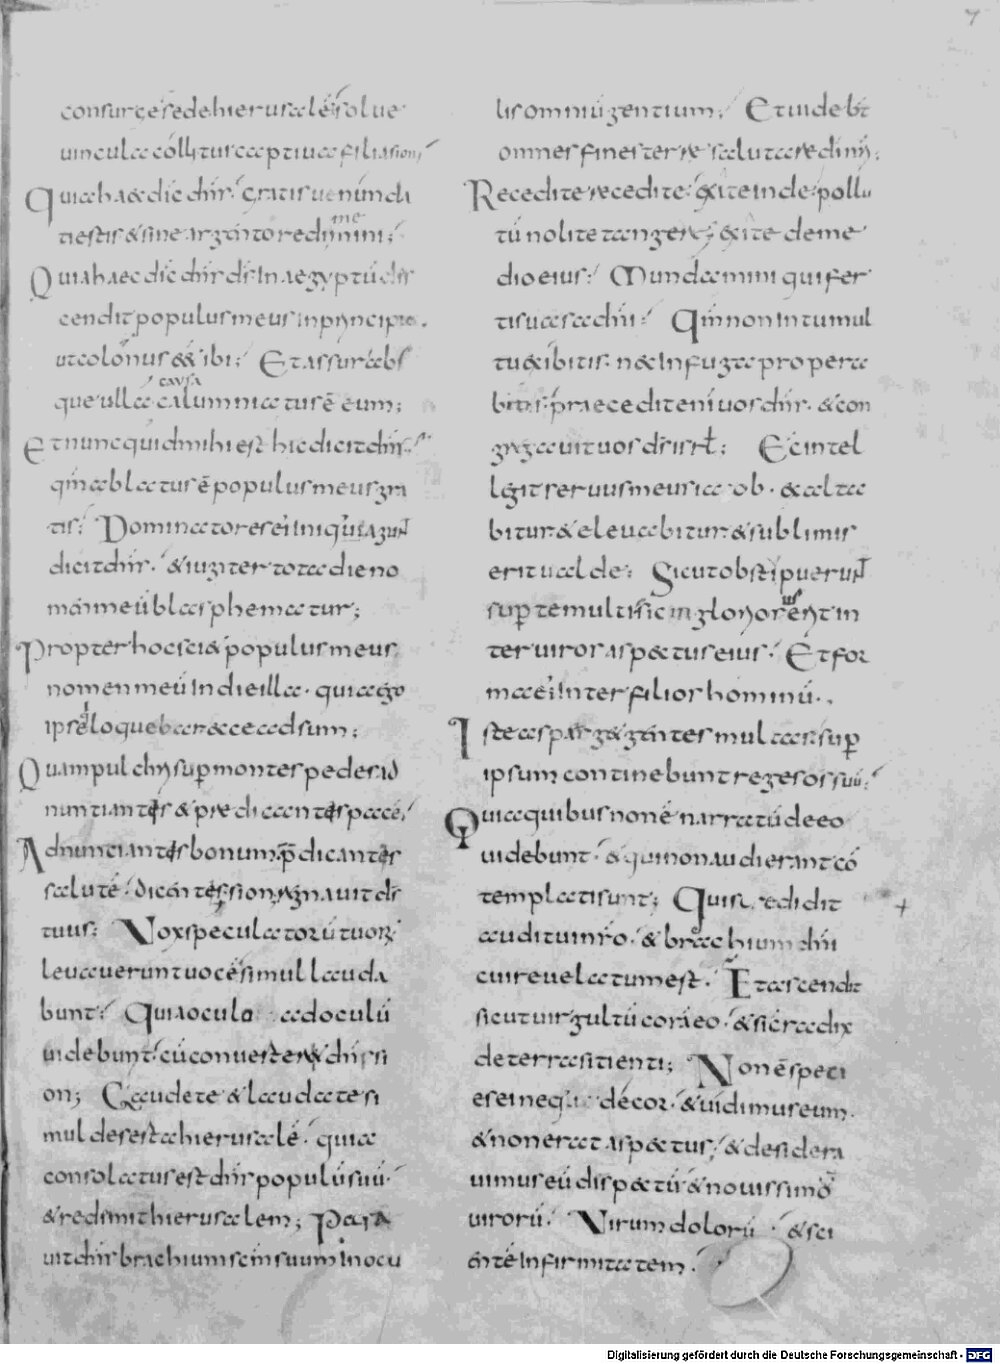 7
consurge sede hierusalē solue
uincula colli tui captiua filia sion;
Quia haec dic̄ dn̄s. gratis uenunda
ti estis & sine argento redimemini;
Quia haec dic̄ dn̄s ds̄. In aegyptū des
cendit populus meus in principio.
ut colonus eēt ibi; Et assur abs
que ulla causa calumniatus ē eum;
Et nunc quid mihi est hic dicit dn̄s.
qm̄ ablatus ē populus meus gra
tis; Dominatores ei' iniq: agunt
dicit dn̄s. & iugiter tota die no
men meū blasphematur;
Propter hoc sci& populus meus
nomen meū in die illa. quia ego
ipse q̇ loquebar ecce adsum;
Quam pulchri sup̄ montes pedes ad
nuntiantis & predicantis pacē;
Adnuntiantis bonum. p̄dicantis
salutē. dicentis sion regnauit ds̄
tuus; Vox speculatorū tuorꝝ
leuauerunt uocē simul lauda
bunt; Quia oculo ad oculū
uidebunt. cū conuerterit dn̄s si
on; Gaudete & laudate si
mul deserta hierusalē. quia
consolatus est dn̄s populū suū.
& redimit hierusalem; Para
uit dn̄s brachium scm̄ suum in ocu
lis omniū gentium; Et uidebt̄
omnes fines terre salutare di nr̄i;
Recedite recedite. exite inde. pollu
tū nolite tangere; exite de me
dio eius; Mundamini qui fer
tis uasa dn̄i; Qm̄ non in tumul
tu exibitis. nec in fuga propera
bitis. praecedit enī uos dn̄s. & con
gregauit uos ds̄ isrl̄; Ecce intel
legit seruus meus iacob. exalta
bitur & eleuabitur & sublimis
erit ualde; Sicut obstipuerunt
sup̄ te multi. sic inglorius erit in
ter uiros aspectus eius; Et for
ma ei' inter filios hominū.,
Iste asparg& gentes multas. sup̄
ipsum continebunt reges os suū;
Quia quibus non ē narratū de eo
uidebunt. & qui non audierant cō
templati sunt; Quis credidit
auditui nr̄o. & brachium dn̄i
cui reuelatum est. Et ascend&
sicut uirgultū corā eo. & sic̄ radix
de terra sitienti; Non ē speci
es ei neq; decor. & uidimus eum.
& non erat aspectus; & desidera
uimus eū dispectū & nouissimū
uirorū. Virum dolorū & sci
entē infirmitatem.
Digitalisierung gefördert durch die Deutsche Forschungsgemeinschaft - DFG